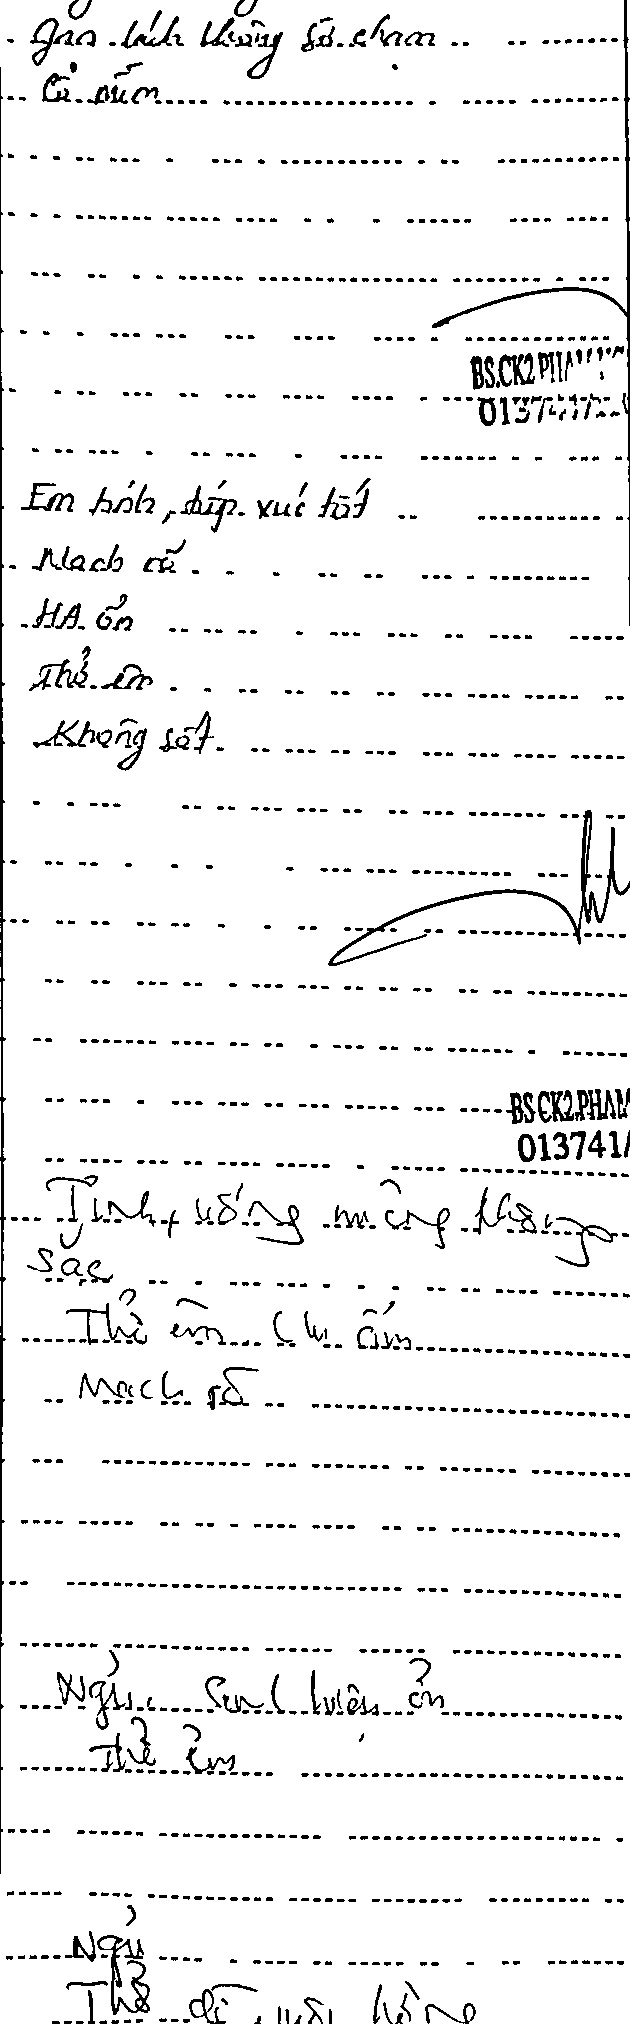 Gan lách không sờ chạm
Cổ mềm
BS.CK2 PHẠM
Em tỉnh, tiếp xúc tốt
Mạch rõ
HA ổn
Thở êm
Không sốt
BS CK2.PHẠM
013741/
Tỉnh, uống miếng không
sặc
Thở êm Chi ấm
Mạch rõ
Ngủ, sinh hiệu ổn
Thở êm
Ngủ
Thở dễ, môi hồng